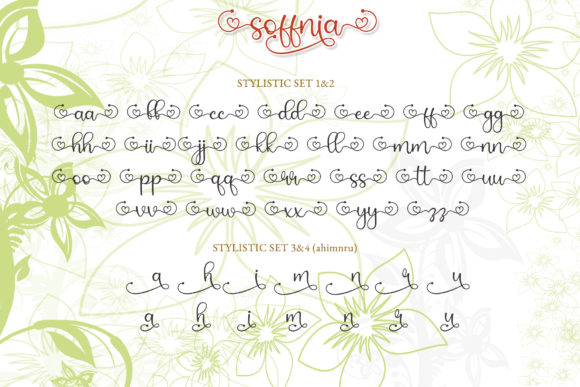 soffnia
STYLISTIC SET 1&2
aa bb cc dd ee ff gg
hh ii jj kk ll mm nn
oo pp qq rr ss tt uu
vv ww xx yy zz
STYLISTIC SET 3&4 (ahimnru)
a h i m n r u
a h i m n r u